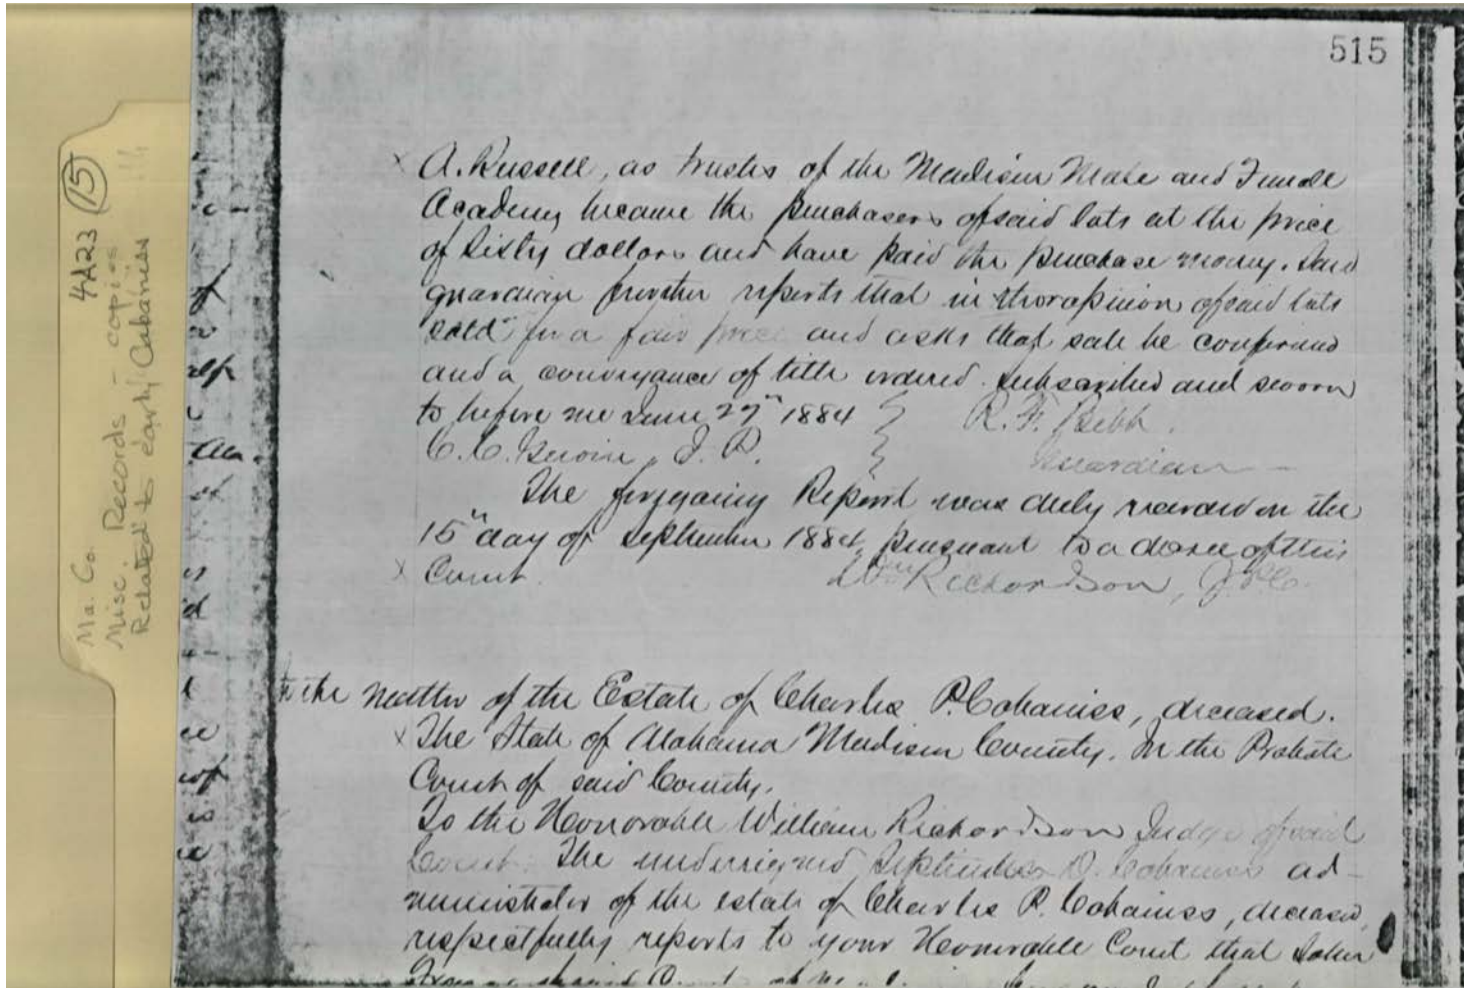 515
Ma. Co. 4A23 (15)
Misc. Records - copies
Related to early Cabaniss
A. Russell, as trustes of the Madison Male and Female
Academy became the purchasers of said lots at the price
of Sixty dollars and have paid the purchase money. Said
guardian further reports that in opinion of said lots
sold for a fair price and asks that sale be confirmed
and a conveyance of title ordered. Subscribed and sworn
to before me June 27" 1884 R. F. Bibb.
C. C. J. P. Guardian
The foregoing Report was duly recorded on the
15" day of September 1884, pursuant to a decree of this
Court. Wm Richardson, J.P.C.
In the Matter of the Estate of Charles P. Cabaniss, deceased.
The State of Alabama Madison County. In the Probate
Court of said County.
To the Honorable William Richardson Judge of said
Court. The undersigned Septimus D. Cabaniss ad-
ministrator of the estate of Charles P. Cabaniss, deceased,
respectfully reports to your Honorable Court that